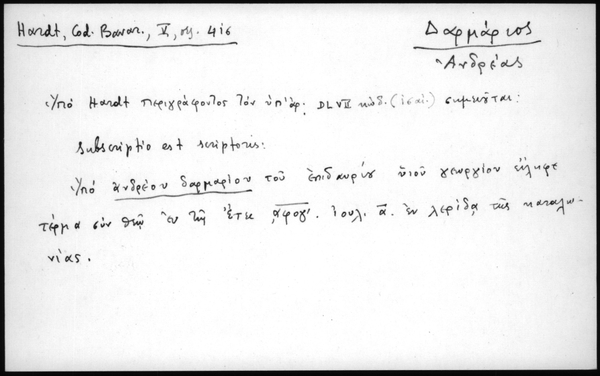 Hardt, Cod. Bavar., V, σγ. 416
Δαρμάριος
Ἀνδρέας
Ὑπὸ Hardt περιγράφοντος τὸν ὑπ' ἀρ. DLVII κώδ. σημειοῦται:
Subscriptio est scriptoris:
Ὑπὸ ἀνδρέου δαρμαρίου τοῦ ἐπιδαυρίου υἱοῦ γεωργίου εἴληφε
τέρμα σὺν θεῷ ἐν τῇ ἔτει ͵αφογ. Ἰουλ. ᾱ. ἐν λερίδᾳ τῆς καταλω-
νίας.